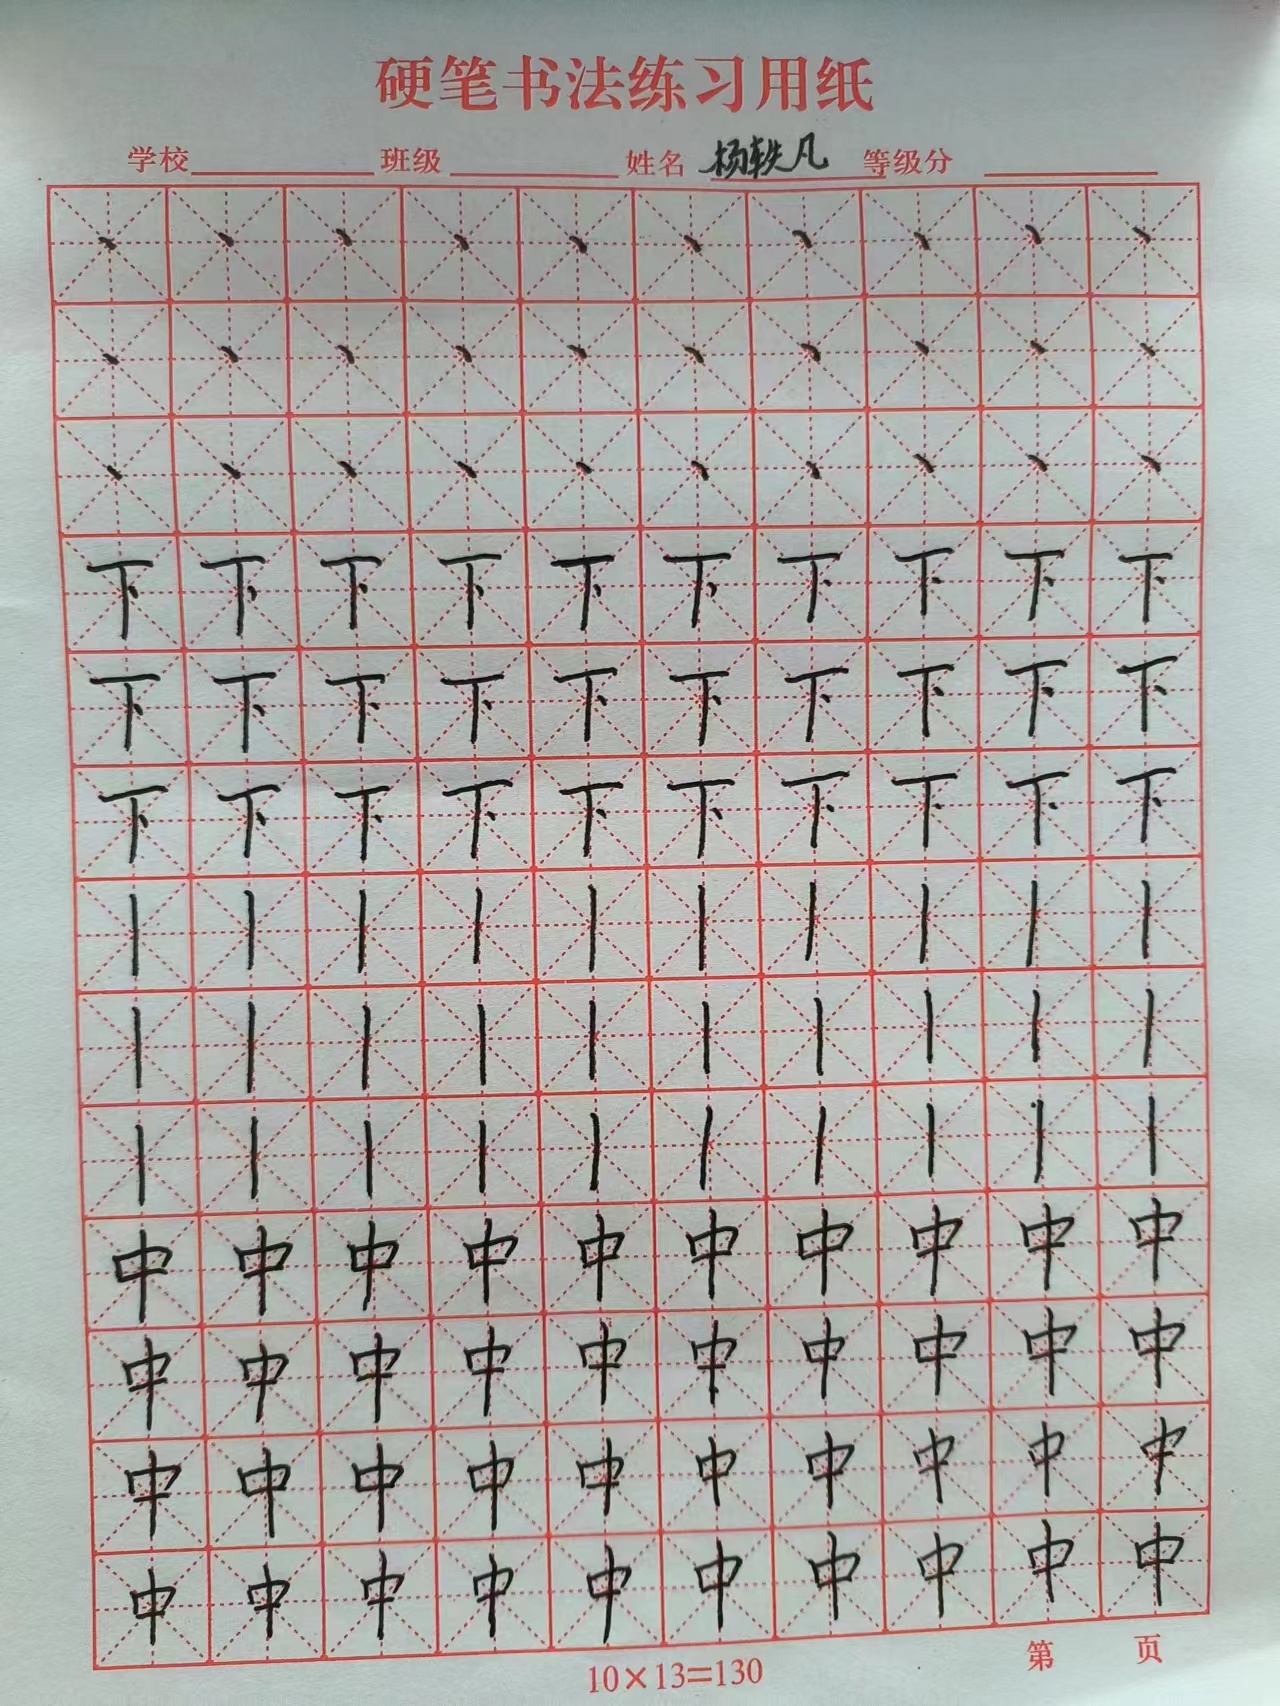 硬笔书法练习用纸
学校 班级 姓名 杨轶凡 等级分
丶丶丶丶丶丶丶丶丶丶
丶丶丶丶丶丶丶丶丶丶
丶丶丶丶丶丶丶丶丶丶
下下下下下下下下下下
下下下下下下下下下下
下下下下下下下下下下
丨丨丨丨丨丨丨丨丨丨
丨丨丨丨丨丨丨丨丨丨
丨丨丨丨丨丨丨丨丨丨
中中中中中中中中中中
中中中中中中中中中中
中中中中中中中中中中
中中中中中中中中中中
10×13=130 第 页